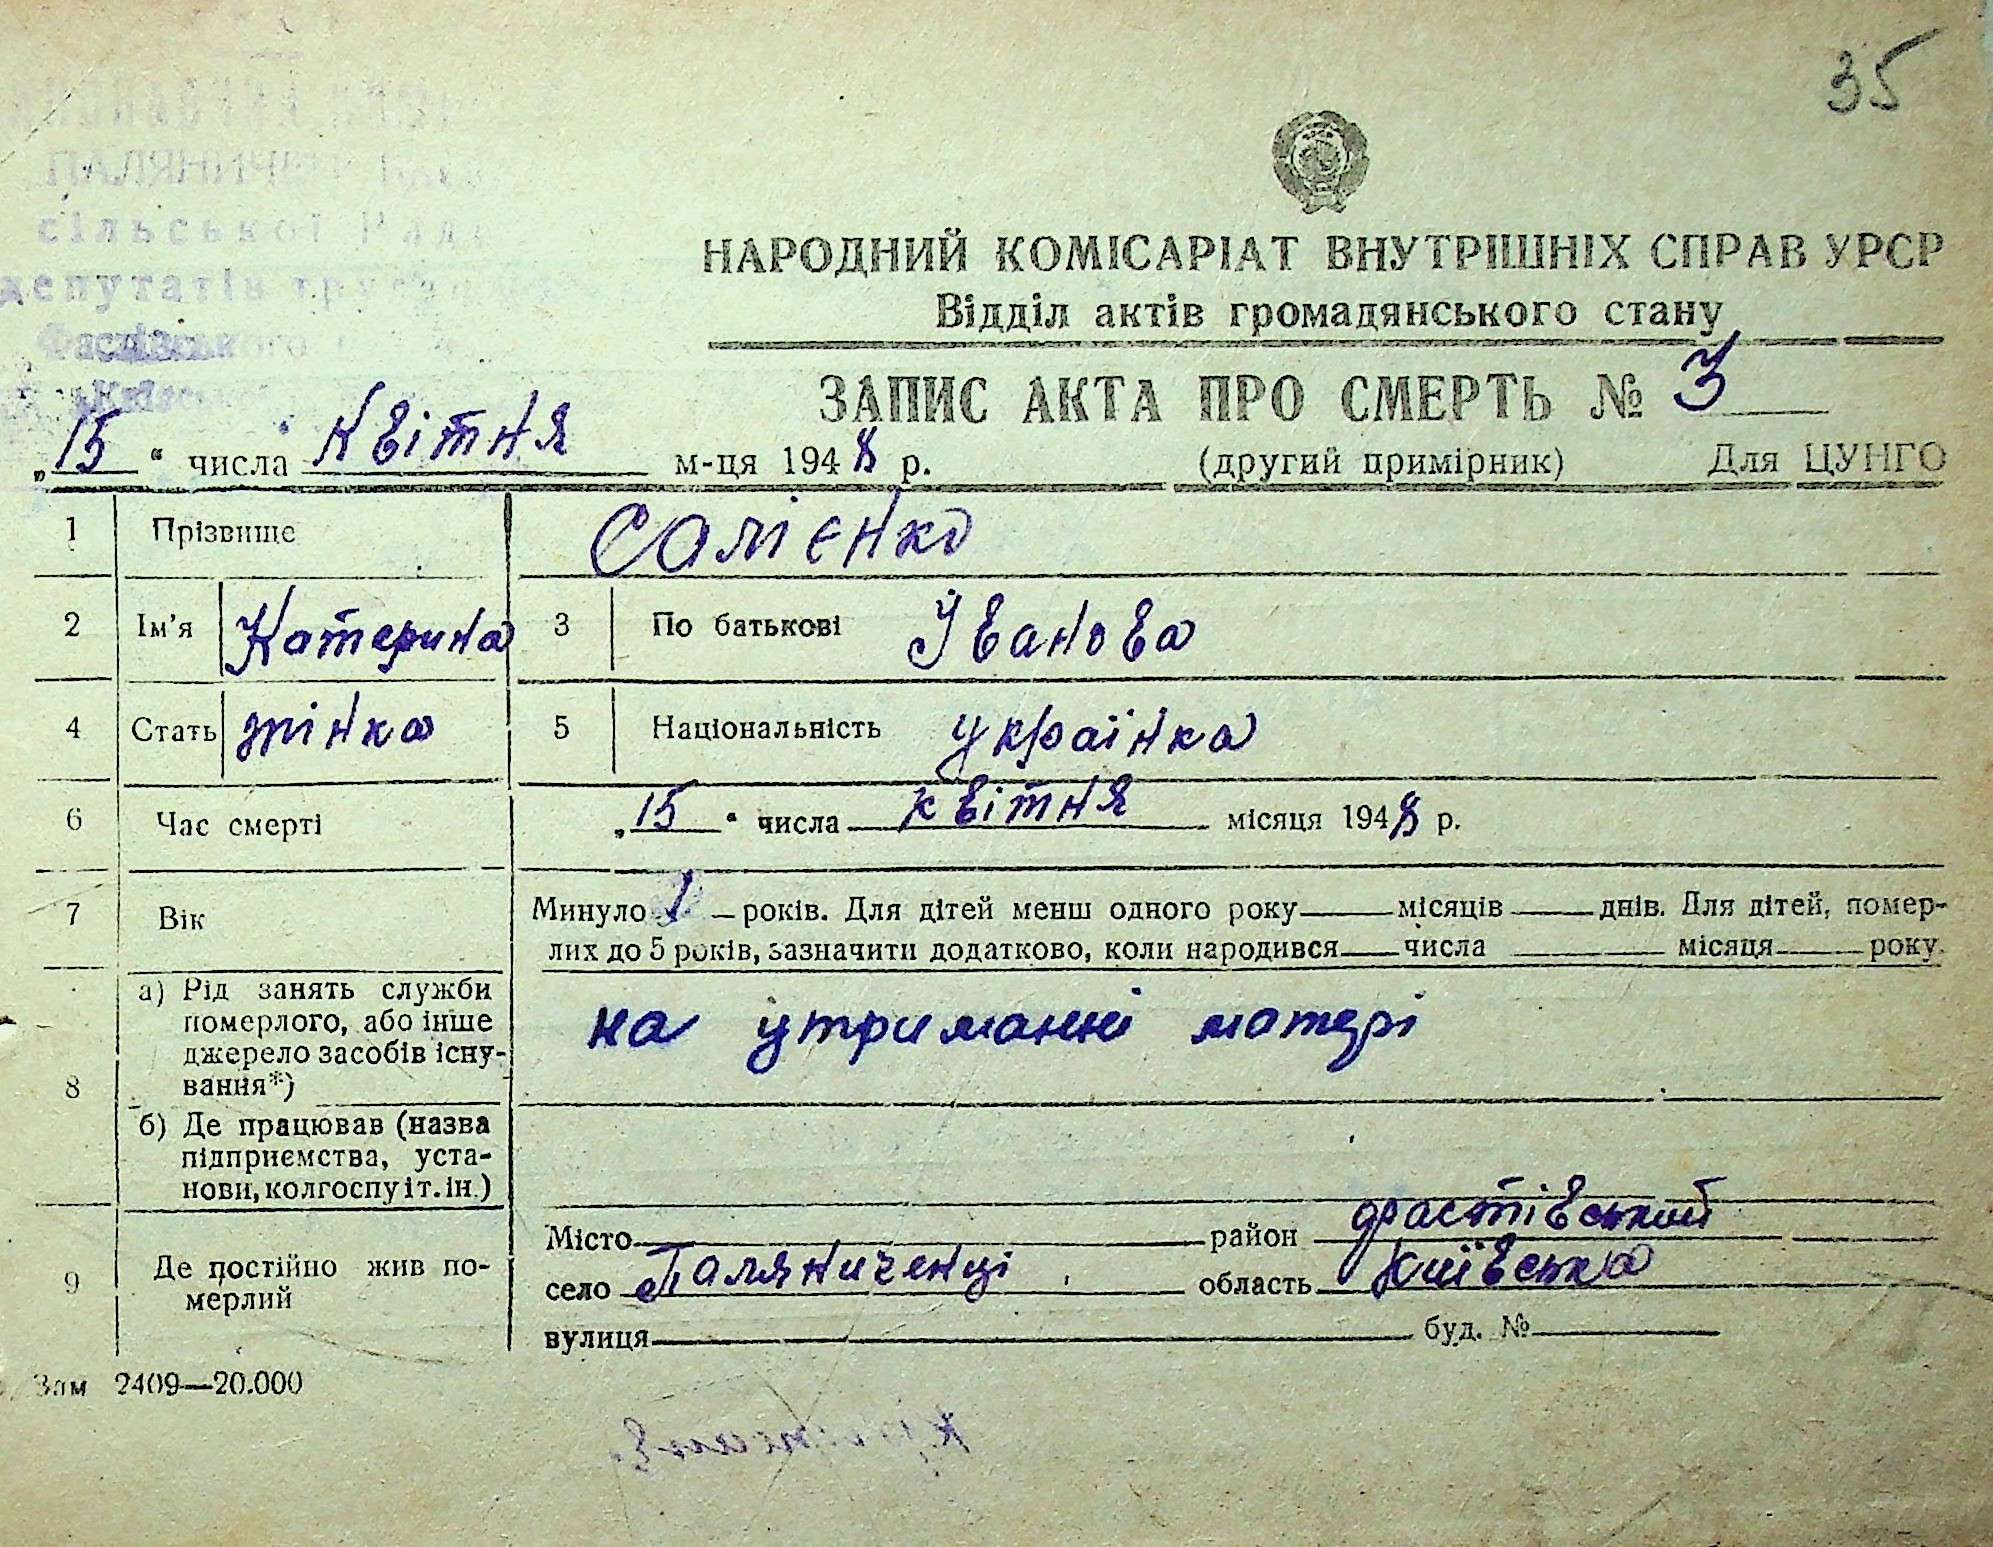 35
ПАЛЯНИЧЕН
сільської Рад
депутатів труд
Фастівського
НАРОДНИЙ КОМІСАРІАТ ВНУТРІШНІХ СПРАВ УРСР
Відділ актів громадянського стану
ЗАПИС АКТА ПРО СМЕРТЬ № 3
„15“ числа Квітня м-ця 1948 р. (другий примірник) Для ЦУНГО
1 Прізвище Солієнко
2 Ім'я Катерина 3 По батькові Іванова
4 Стать жінка 5 Національність українка
6 Час смерті „15“ числа квітня місяця 1948 р.
7 Вік Минуло 1 років. Для дітей менш одного року місяців днів. Для дітей, помер-
лих до 5 років, зазначити додатково, коли народився числа місяця року.
8 а) Рід занять служби
померлого, або інше
джерело засобів існу-
вання*)
на утриманні матері
б) Де працював (назва
підприємства, уста-
нови, колгоспу і т. ін.)
9 Де постійно жив по-
мерлий
Місто район Фастівський
село Паляниченці область Київська
вулиця буд. №
Зам 2409—20.000